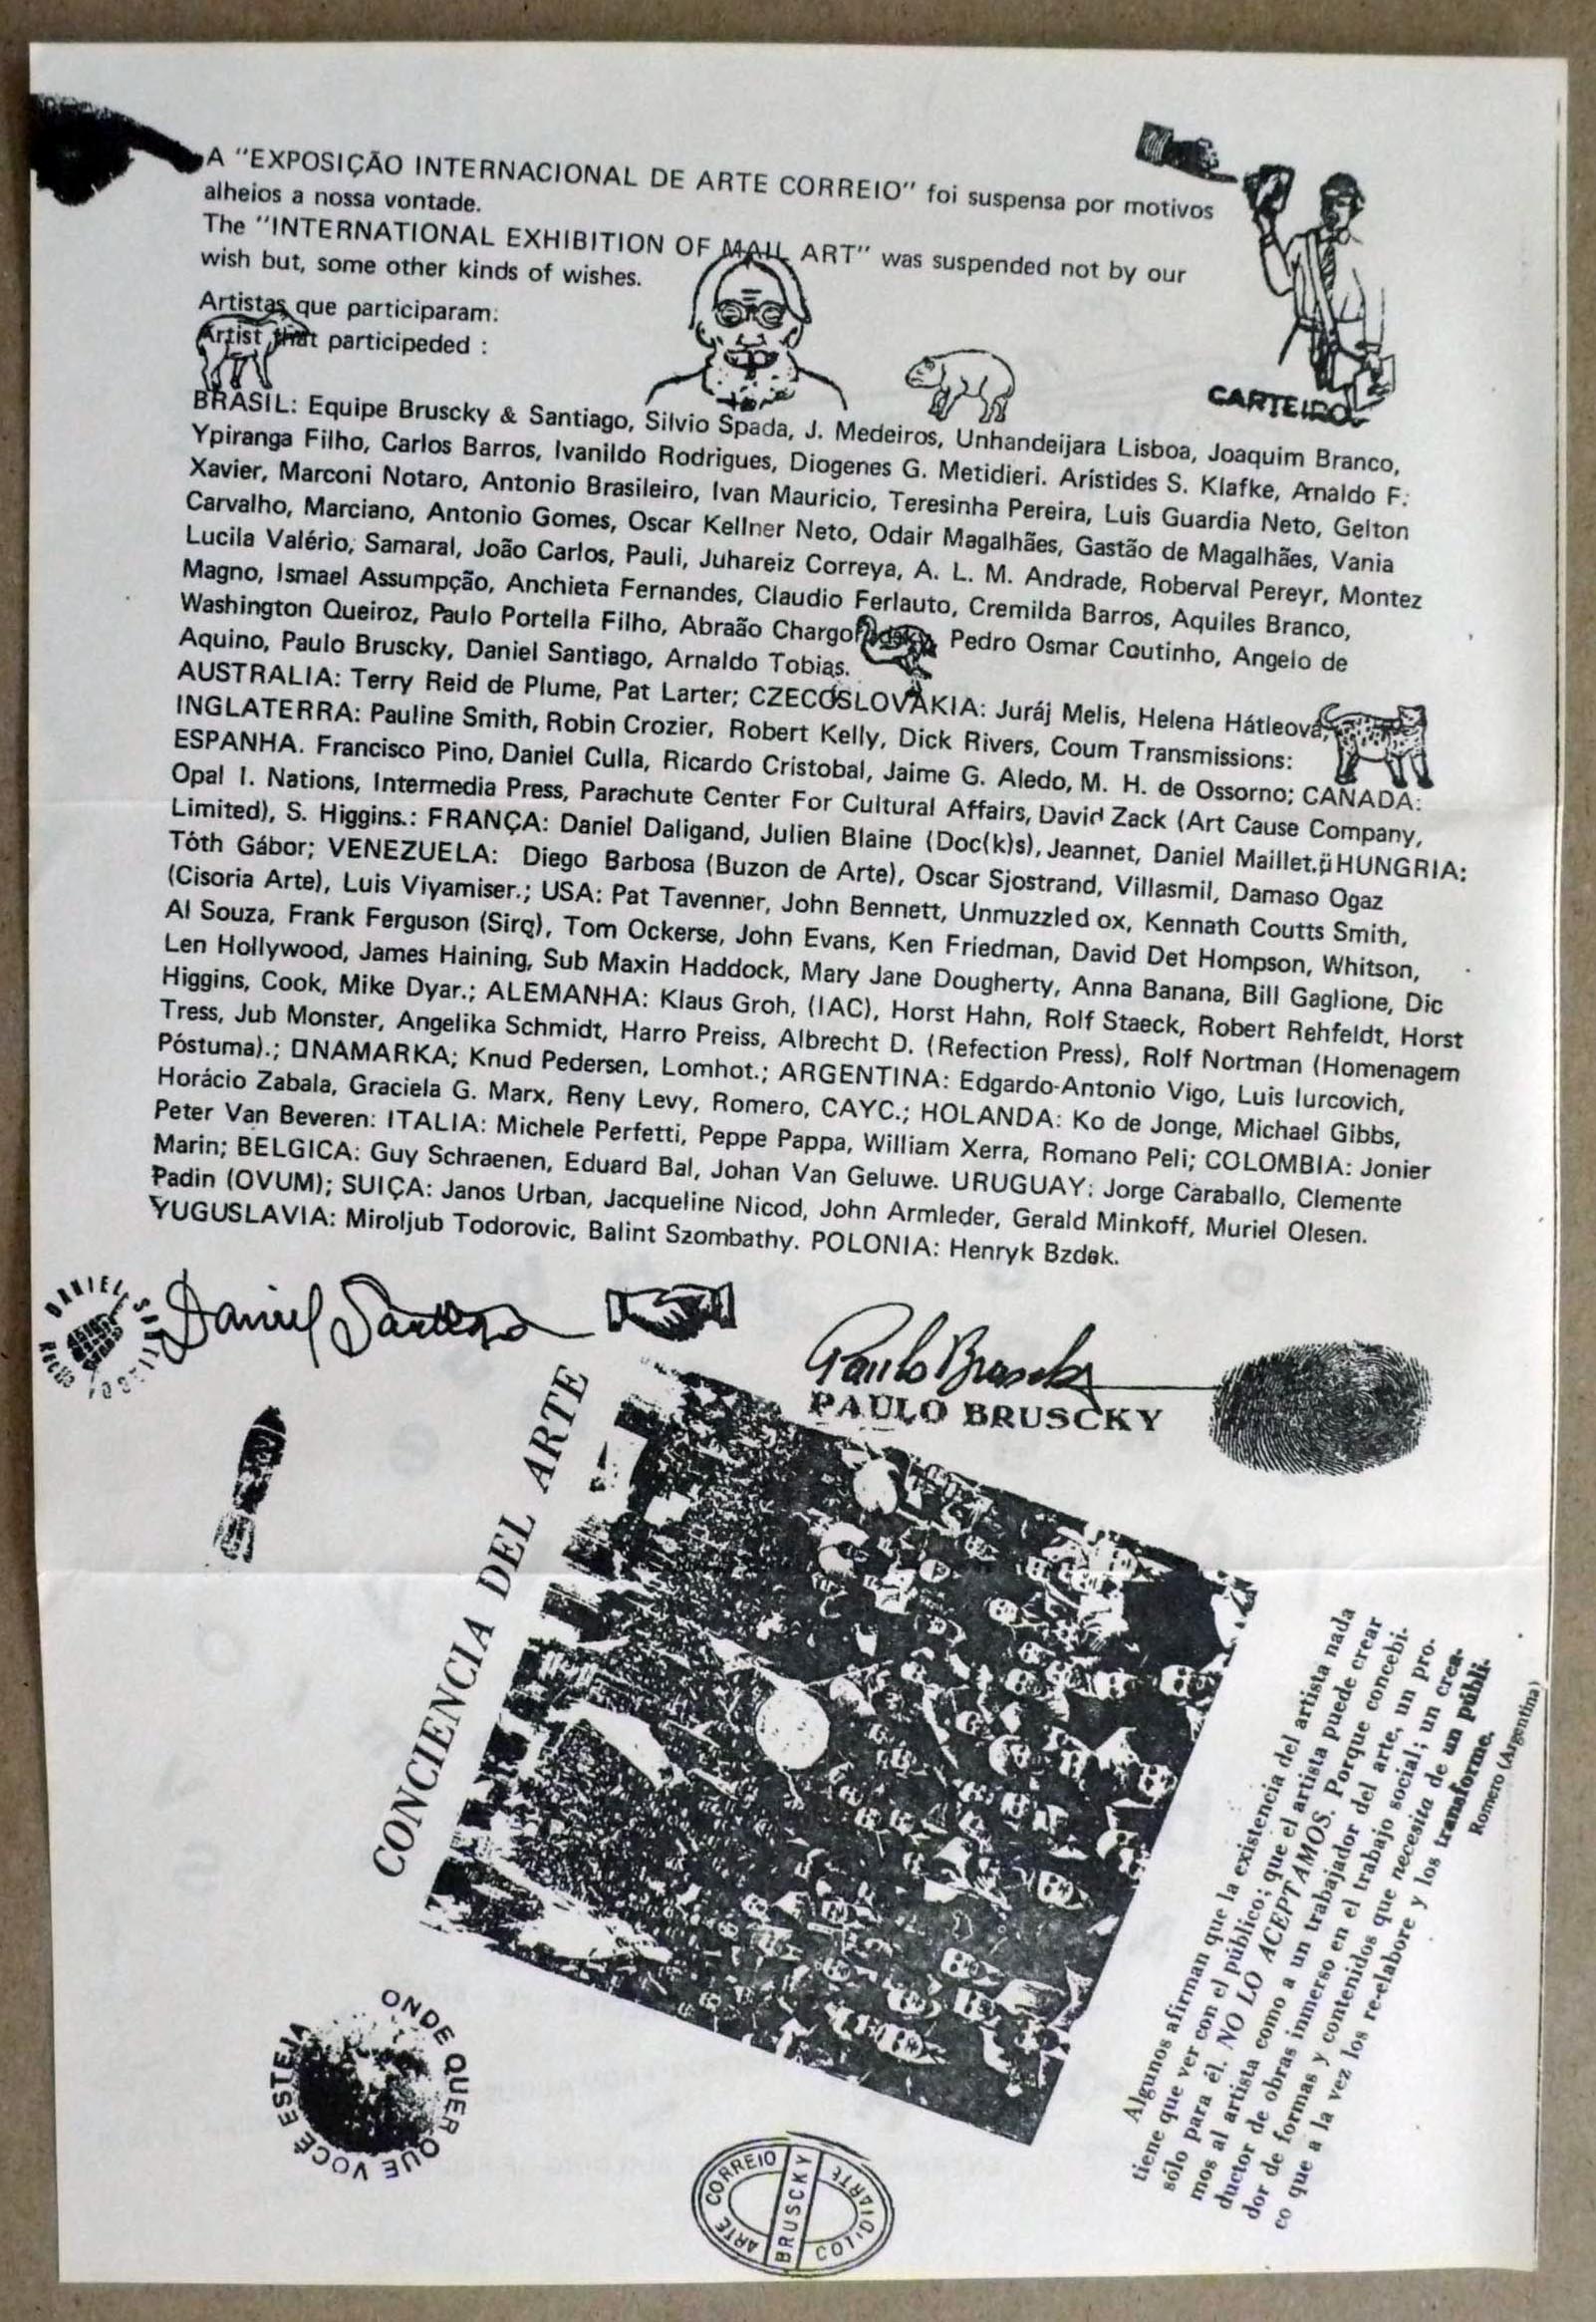 A "EXPOSIÇÃO INTERNACIONAL DE ARTE CORREIO" foi suspensa por motivos
alheios a nossa vontade.
The "INTERNATIONAL EXHIBITION OF MAIL ART" was suspended not by our
wish but, some other kinds of wishes.
Artistas que participaram:
Artist that participeded :
CARTEIRO
BRASIL: Equipe Bruscky & Santiago, Silvio Spada, J. Medeiros, Unhandeijara Lisboa, Joaquim Branco,
Ypiranga Filho, Carlos Barros, Ivanildo Rodrigues, Diogenes G. Metidieri. Arístides S. Klafke, Arnaldo F.
Xavier, Marconi Notaro, Antonio Brasileiro, Ivan Mauricio, Teresinha Pereira, Luis Guardia Neto, Gelton
Carvalho, Marciano, Antonio Gomes, Oscar Kellner Neto, Odair Magalhães, Gastão de Magalhães, Vania
Lucila Valério, Samaral, João Carlos, Pauli, Juhareiz Correya, A. L. M. Andrade, Roberval Pereyr, Montez
Magno, Ismael Assumpção, Anchieta Fernandes, Claudio Ferlauto, Cremilda Barros, Aquiles Branco,
Washington Queiroz, Paulo Portella Filho, Abraão Pedro Osmar Coutinho, Angelo de
Aquino, Paulo Bruscky, Daniel Santiago, Arnaldo Tobias.
AUSTRALIA: Terry Reid de Plume, Pat Larter; CZECOSLOVAKIA: Juráj Melis, Helena Hátleová,
INGLATERRA: Pauline Smith, Robin Crozier, Robert Kelly, Dick Rivers, Coum Transmissions:
ESPANHA. Francisco Pino, Daniel Culla, Ricardo Cristobal, Jaime G. Aledo, M. H. de Ossorno; CANADA:
Opal I. Nations, Intermedia Press, Parachute Center For Cultural Affairs, David Zack (Art Cause Company,
Limited), S. Higgins.: FRANÇA: Daniel Daligand, Julien Blaine (Doc(k)s), Jeannet, Daniel Maillet. HUNGRIA:
Tóth Gábor; VENEZUELA: Diego Barbosa (Buzon de Arte), Oscar Sjostrand, Villasmil, Damaso Ogaz
(Cisoria Arte), Luis Viyamiser.; USA: Pat Tavenner, John Bennett, Unmuzzled ox, Kennath Coutts Smith,
Al Souza, Frank Ferguson (Sirq), Tom Ockerse, John Evans, Ken Friedman, David Det Hompson, Whitson,
Len Hollywood, James Haining, Sub Maxin Haddock, Mary Jane Dougherty, Anna Banana, Bill Gaglione, Dic
Higgins, Cook, Mike Dyar.; ALEMANHA: Klaus Groh, (IAC), Horst Hahn, Rolf Staeck, Robert Rehfeldt, Horst
Tress, Jub Monster, Angelika Schmidt, Harro Preiss, Albrecht D. (Refection Press), Rolf Nortman (Homenagem
Póstuma).; DNAMARKA; Knud Pedersen, Lomhot.; ARGENTINA: Edgardo-Antonio Vigo, Luis Iurcovich,
Horácio Zabala, Graciela G. Marx, Reny Levy, Romero, CAYC.; HOLANDA: Ko de Jonge, Michael Gibbs,
Peter Van Beveren: ITALIA: Michele Perfetti, Peppe Pappa, William Xerra, Romano Peli; COLOMBIA: Jonier
Marin; BELGICA: Guy Schraenen, Eduard Bal, Johan Van Geluwe. URUGUAY: Jorge Caraballo, Clemente
Padin (OVUM); SUIÇA: Janos Urban, Jacqueline Nicod, John Armleder, Gerald Minkoff, Muriel Olesen.
YUGUSLAVIA: Miroljub Todorovic, Balint Szombathy. POLONIA: Henryk Bzdek.
DANIEL SANTIAGO
Daniel Santiago
Paulo Bruscky
PAULO BRUSCKY
CONCIENCIA DEL ARTE
Algunos afirman que la existencia del artista nada
tiene que ver con el público; que el artista puede crear
sólo para él. NO LO ACEPTAMOS. Porque concebi-
mos al artista como a un trabajador del arte, un pro-
ductor de obras inmerso en el trabajo social; un crea-
dor de formas y contenidos que necesita de un públi-
co que a la vez los re-elabore y los transforme.
Romero (Argentina)
ONDE QUER QUE VOCÊ ESTEJA
ARTE CORREIO
BRUSCKY
COTIDIARTE